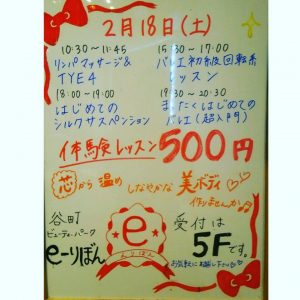 2月18日(土)
10:30~11:45
リンパマッサージ&
TYE4
15:30~17:00
バレエ初級回転系
レッスン
18:00~19:00
はじめての
シルクサスペンション
19:30~20:30
まったくはじめての
バレエ(超入門)
体験レッスン500円
芯から温め しなやかな 美ボディ
作りませんか
谷町
ビューティーパーク
e-りぼん
e
えりぼん
受付は
5Fです。
お気軽にお越し下さい